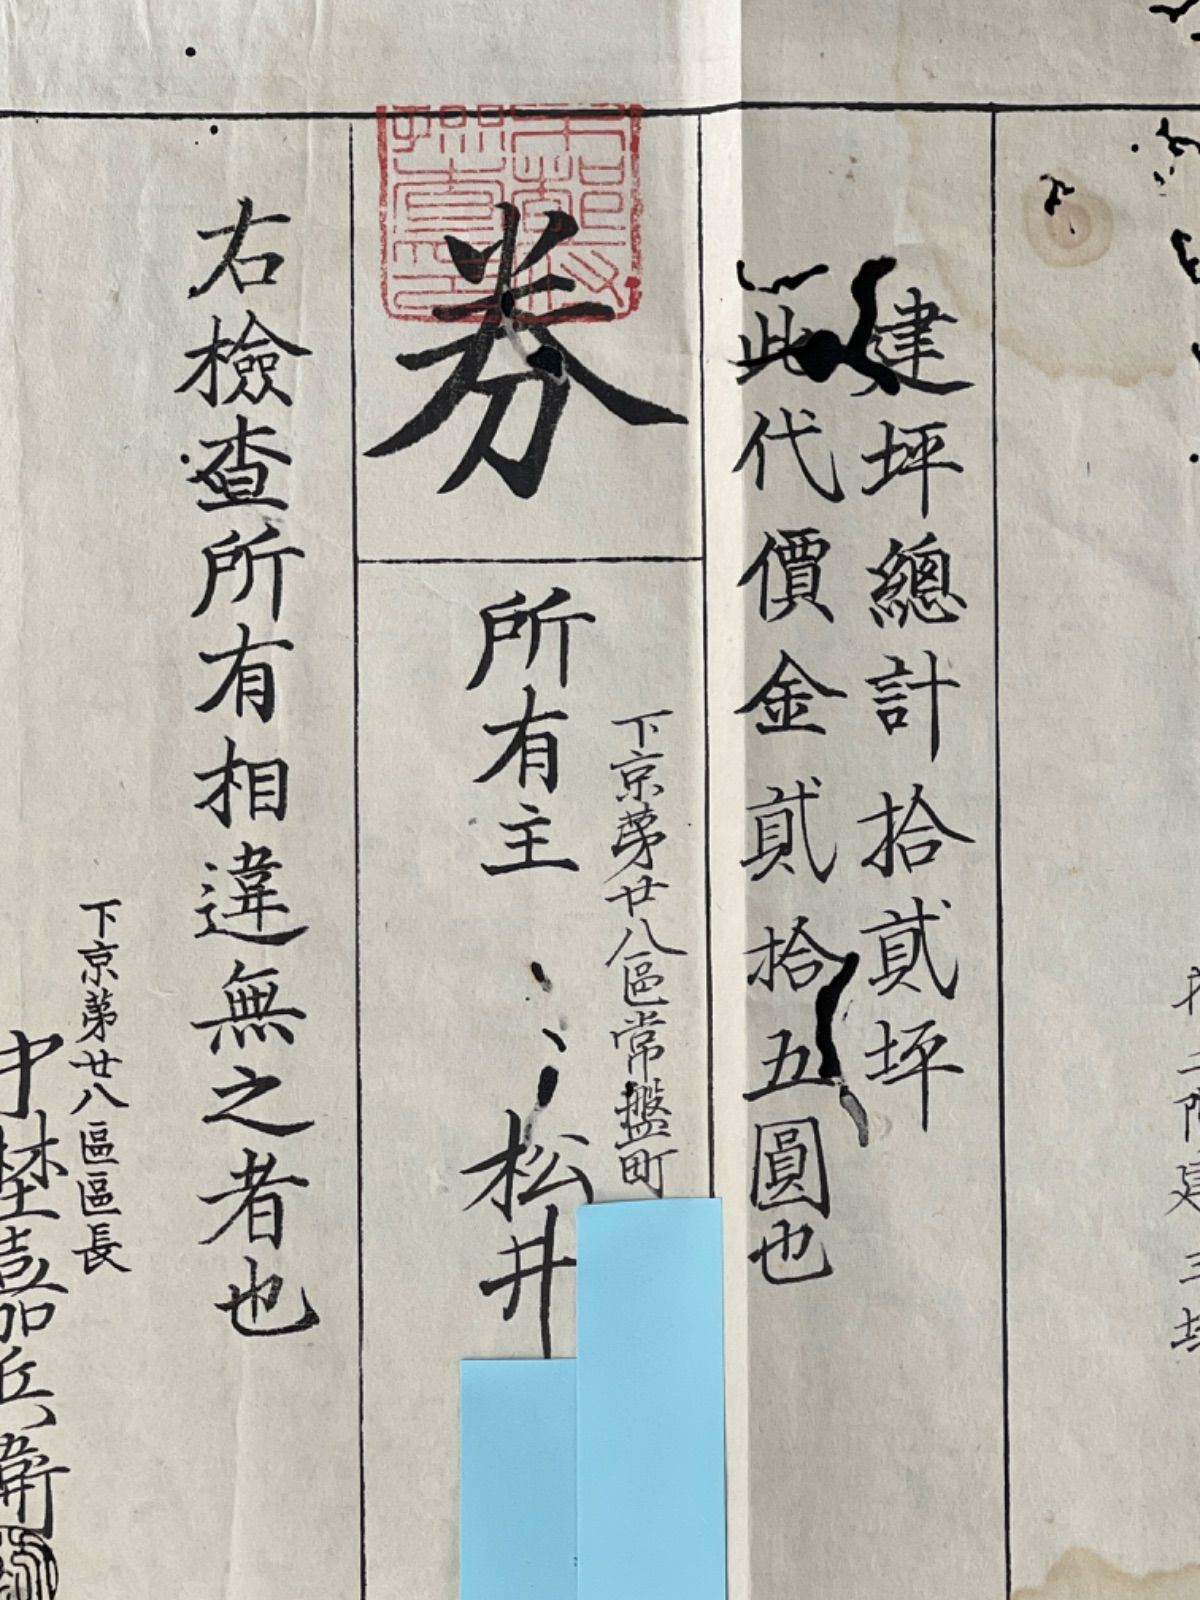 二階建三坪
建坪總計拾貳坪
此代價金貳拾五圓也
券
下京第廿八區常盤町
所有主 松井
右檢査所有相違無之者也
下京第廿八區區長
中埜嘉兵衛